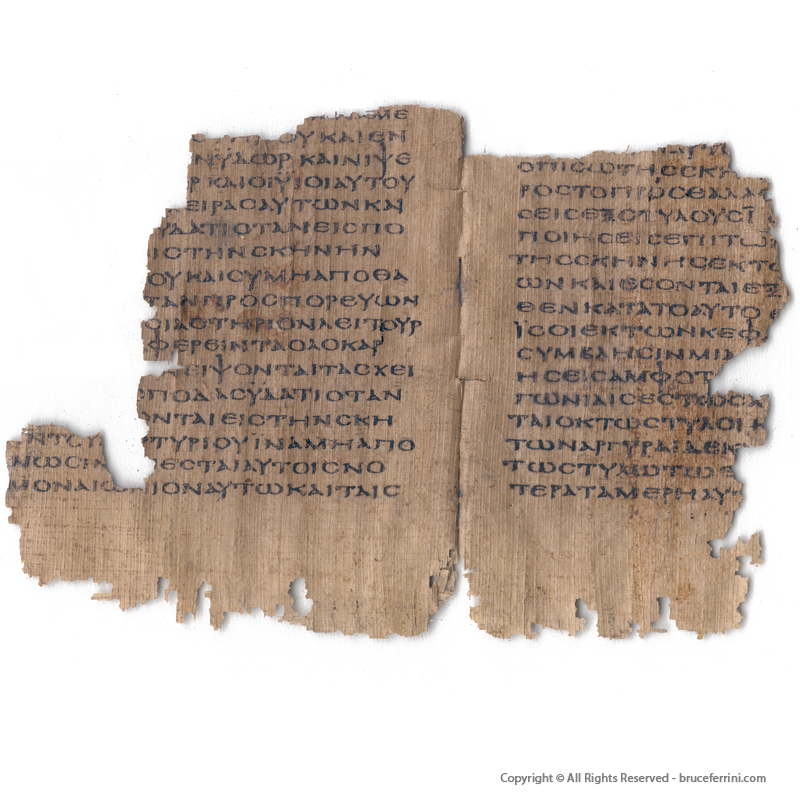 ΜΕ
ΟΥΚΑΙΕΝ
ΝΥΔΩΡΚΑΙΝΙΨΕ
ΡΚΑΙΟΙΫΙΟΙΑΥΤΟΥ
ΕΙΡΑϹΑΥΤΩΝΚΑΙ
ΥΔΑΤΙΟΤΑΝΕΙϹΠΟ
ΙϹΤΗΝϹΚΗΝΗΝ
ΟΥΚΑΙΟΥΜΗΑΠΟΘΑ
ΤΑΝΠΡΟϹΠΟΡΕΥΩΝ
ΟΙΑϹΤΗΡΙΟΝΛΕΙΤΟΥΡ
ΦΕΡΕΙΝΤΑΟΛΟΚΑΥ
ΕΙΨΟΝΤΑΙΤΑϹΧΕΙ
ϹΠΟΔΑϹΥΔΑΤΙΟΤΑΝ
ΟΝΤΑΙΕΙϹΤΗΝϹΚΗ
ΝΤΟΥ ΤΥΡΙΟΥΪΝΑΜΗΑΠΟ
ΝΩϹΙΝ ΕϹΤΑΙΑΥΤΟΙϹΝΟ
ΜΟΝΑΙΩΝΙΟΝΑΥΤΩΚΑΙΤΑΙϹ
ΟΠΙϹΩΤΗϹϹΚΗ
ΡΟϹΤΟΠΡΟϹΘΑΛΑϹ
ϹΕΙϹΕΞϹΤΥΛΟΥϹΪ
ΠΟΙΗϹΕΙϹΕΠΙΤΩ
ΤΗϹϹΚΗΝΗϹΕΚΤΩ
ΩΝΚΑΙΕϹΟΝΤΑΙΕΞ
ΘΕΝΚΑΤΑΤΟΑΥΤΟ
ΙϹΟΙΕΚΤΩΝΚΕΦ
ϹΥΜΒΛΗϹΙΝΜΙΑ
ΗϹΕΙϹΑΜΦΟΤ
ΓΩΝΙΑΙϹΕϹΤΩϹΑ
ΤΑΙΟΚΤΩϹΤΥΛΟΙΚ
ΤΩΝΑΡΓΥΡΑΙΔΕΚ
ΤΩϹΤΥΛΩΤΩΕ
ΤΕΡΑΤΑΜΕΡΗΑΥ
Copyright © All Rights Reserved - bruceferrini.com